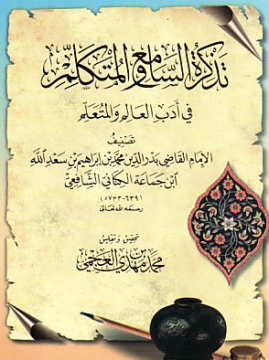 تذكرة السامع والمتكلم
في أدب العالم والمتعلم
تصنيف
الإمام القاضي بدر الدين محمد بن إبراهيم بن سعد الله
ابن جماعة الكناني الشافعي
(٦٣٩-٧٣٣)
رحمه الله تعالى
تحقيق وتعليق
محمد بن مهدي العجمي